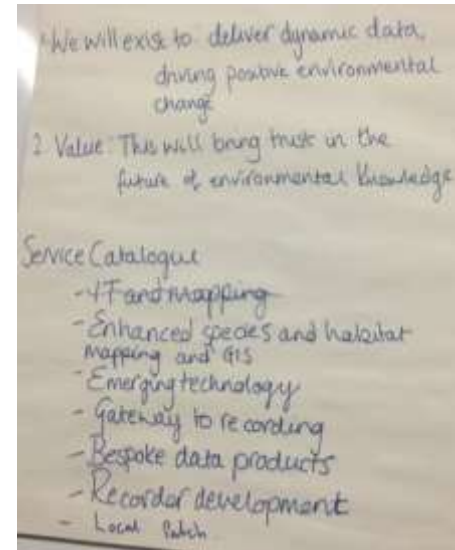 1. We will exist to deliver dynamic data,
driving positive environmental
change
2. Value: This will bring trust in the
future of environmental knowledge
Service Catalogue
- IT and mapping
- Enhanced species and habitat
mapping and GIS
- Emerging technology
- Gateway to recording
- Bespoke data products
- Recorder development
- Local Patch